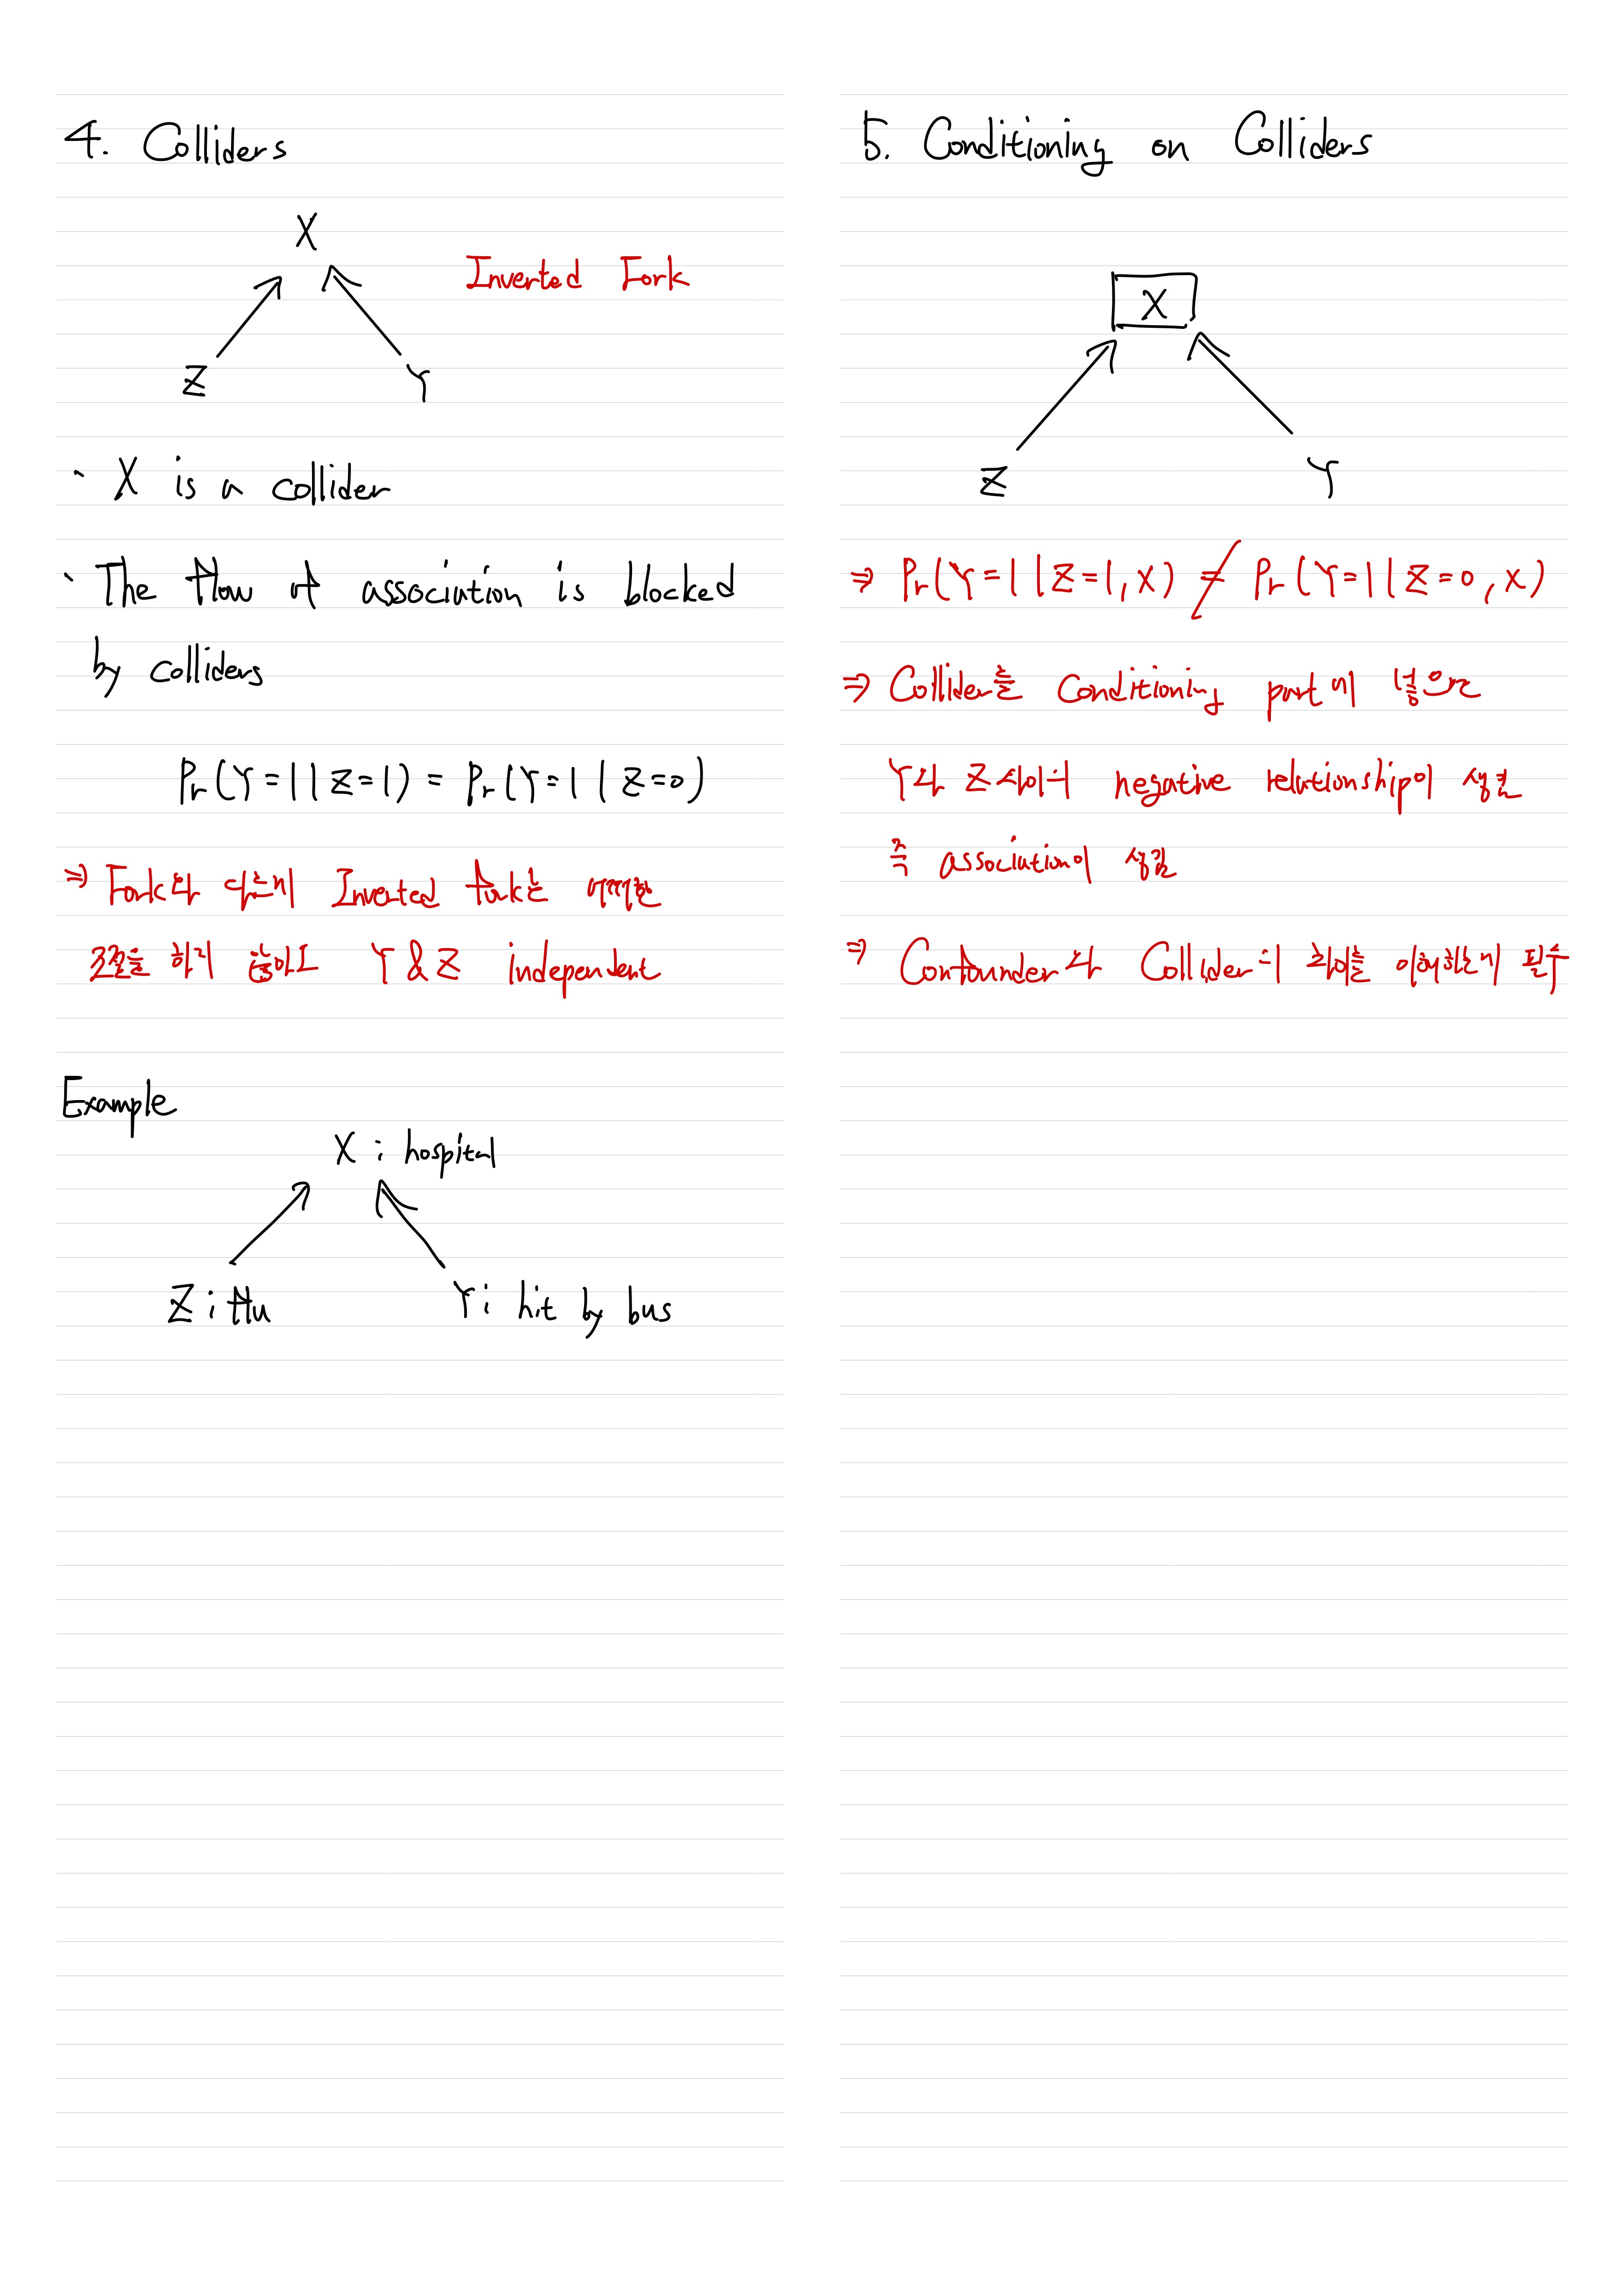 4. Colliders
X
Inverted Fork
Z Y
· X is a collider
· The flow of association is blocked
by colliders
Pr(Y=1|Z=1) = Pr(Y=1|Z=0)
⇒ Fork와 다르게 Inverted fork는 어떠한
조절을 하지 않아도 Y & Z independent
Example
X : hospital
Z : flu Y : hit by bus
5. Conditioning on Colliders
X
Z Y
⇒ Pr(Y=1|Z=1,X) ≠ Pr(Y=1|Z=0,X)
⇒ Collider를 Conditioning part에 넣으면
Y와 Z사이의 negative relationship이 생김
즉 association이 생김
⇒ Confounder와 Collider의 차이를 이해하는게 필수